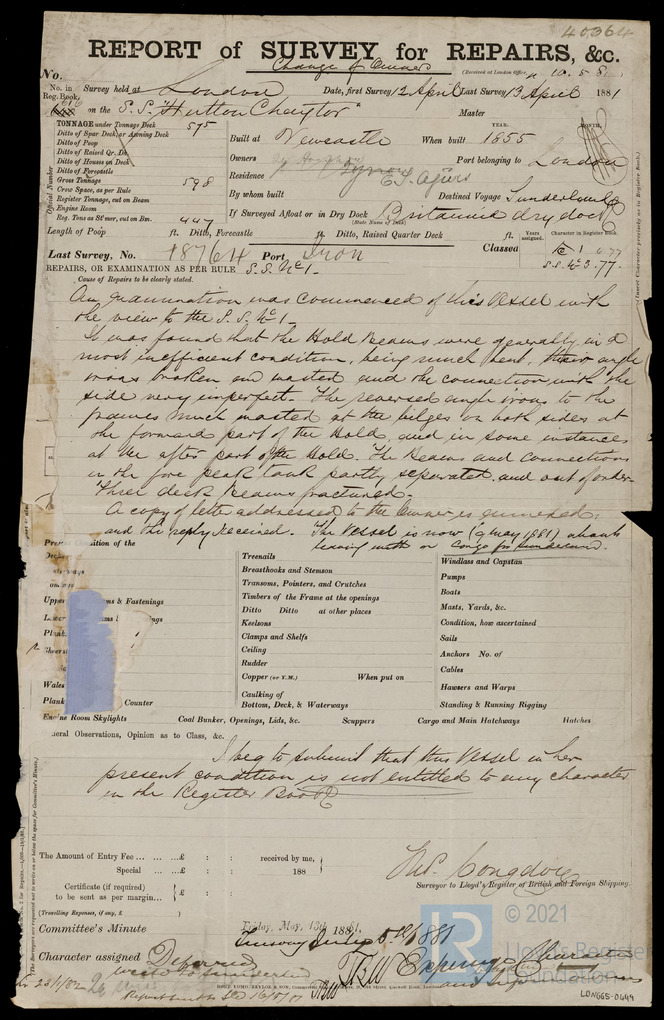 40364
REPORT of SURVEY for REPAIRS, &c.
Change of Owners
(Received at London Office,
No.
No. in Reg. Book. Survey held at London Date, first Survey 12 April Last Survey 13 April 1881
616 on the S.S. "Hutton Chaytor" Master
TONNAGE under Tonnage Deck 575
Ditto of Spar Deck, or Awning Deck
Ditto of Poop
Ditto of Raised Qr. Dk.
Ditto of Houses on Deck
Ditto of Forecastle
Gross Tonnage 598
Crew Space, as per Rule
Register Tonnage, cut on Beam
Engine Room
Reg. Tons as St'mer, cut on Bm. 447
Official Number
YEAR. MONTH.
Built at Newcastle When built 1855
Owners Port belonging to London
Residence
By whom built Destined Voyage Sunderland
If Surveyed Afloat or in Dry Dock Britannia dry dock
(State Name of Dock)
Length of Poop ft. Ditto, Forecastle ft. Ditto, Raised Quarter Deck ft.
Years assigned. Character in Register Book.
Last Survey, No. 18764 Port Iron Classed 1 6.77
S.S. No 3.77.
REPAIRS, OR EXAMINATION AS PER RULE S.S. No 1.
Cause of Repairs to be clearly stated.
An examination was commenced of this Vessel with
the view to the S.S. No 1.
It was found that the Hold Beams were generally in a
most inefficient condition, being much bent, their angle
irons broken, and wasted and the connection with the
side very imperfect. The reversed angle irons to the
frames much wasted at the bilges on both sides at
the forward part of the Hold, and in some instances
at the after part of the Hold. The Beams and connections
in the fore peak tank partly separated, and out of order.
Three deck Beams fractured.
A copy of letter addressed to the Owner is annexed,
and the reply received. The Vessel is now (9 May 1881) about
leaving with cargo for Sunderland.
Present Condition of the
Upper Fastenings
Wales
Plank Counter
Engine Room Skylights Coal Bunker, Openings, Lids, &c. Scuppers Cargo and Main Hatchways Hatches
Treenails
Breasthooks and Stemson
Transoms, Pointers, and Crutches
Timbers of the Frame at the openings
Ditto Ditto at other places
Keelsons
Clamps and Shelfs
Ceiling
Rudder
Copper (or Y.M.) When put on
Caulking of
Bottom, Deck, & Waterways
Windlass and Capstan
Pumps
Boats
Masts, Yards, &c.
Condition, how ascertained
Sails
Anchors No. of
Cables
Hawsers and Warps
Standing & Running Rigging
General Observations, Opinion as to Class, &c.
I beg to submit that this Vessel in her
present condition is not entitled to any character
in the Register Book
The Amount of Entry Fee ... ... ...£ : : received by me,
Special ... ...£ : : 188
Certificate (if required) to be sent as per margin... £ : :
(Travelling Expenses, if any, £ )
Congdon
Surveyor to Lloyd's Register of British and Foreign Shipping.
Committee's Minute Friday, May, 13th 1881.
Tuesday July 5th 1881
Character assigned Deferred
Expunge Character
© 2021
Lloyd's Register
Foundation
LON665-0649